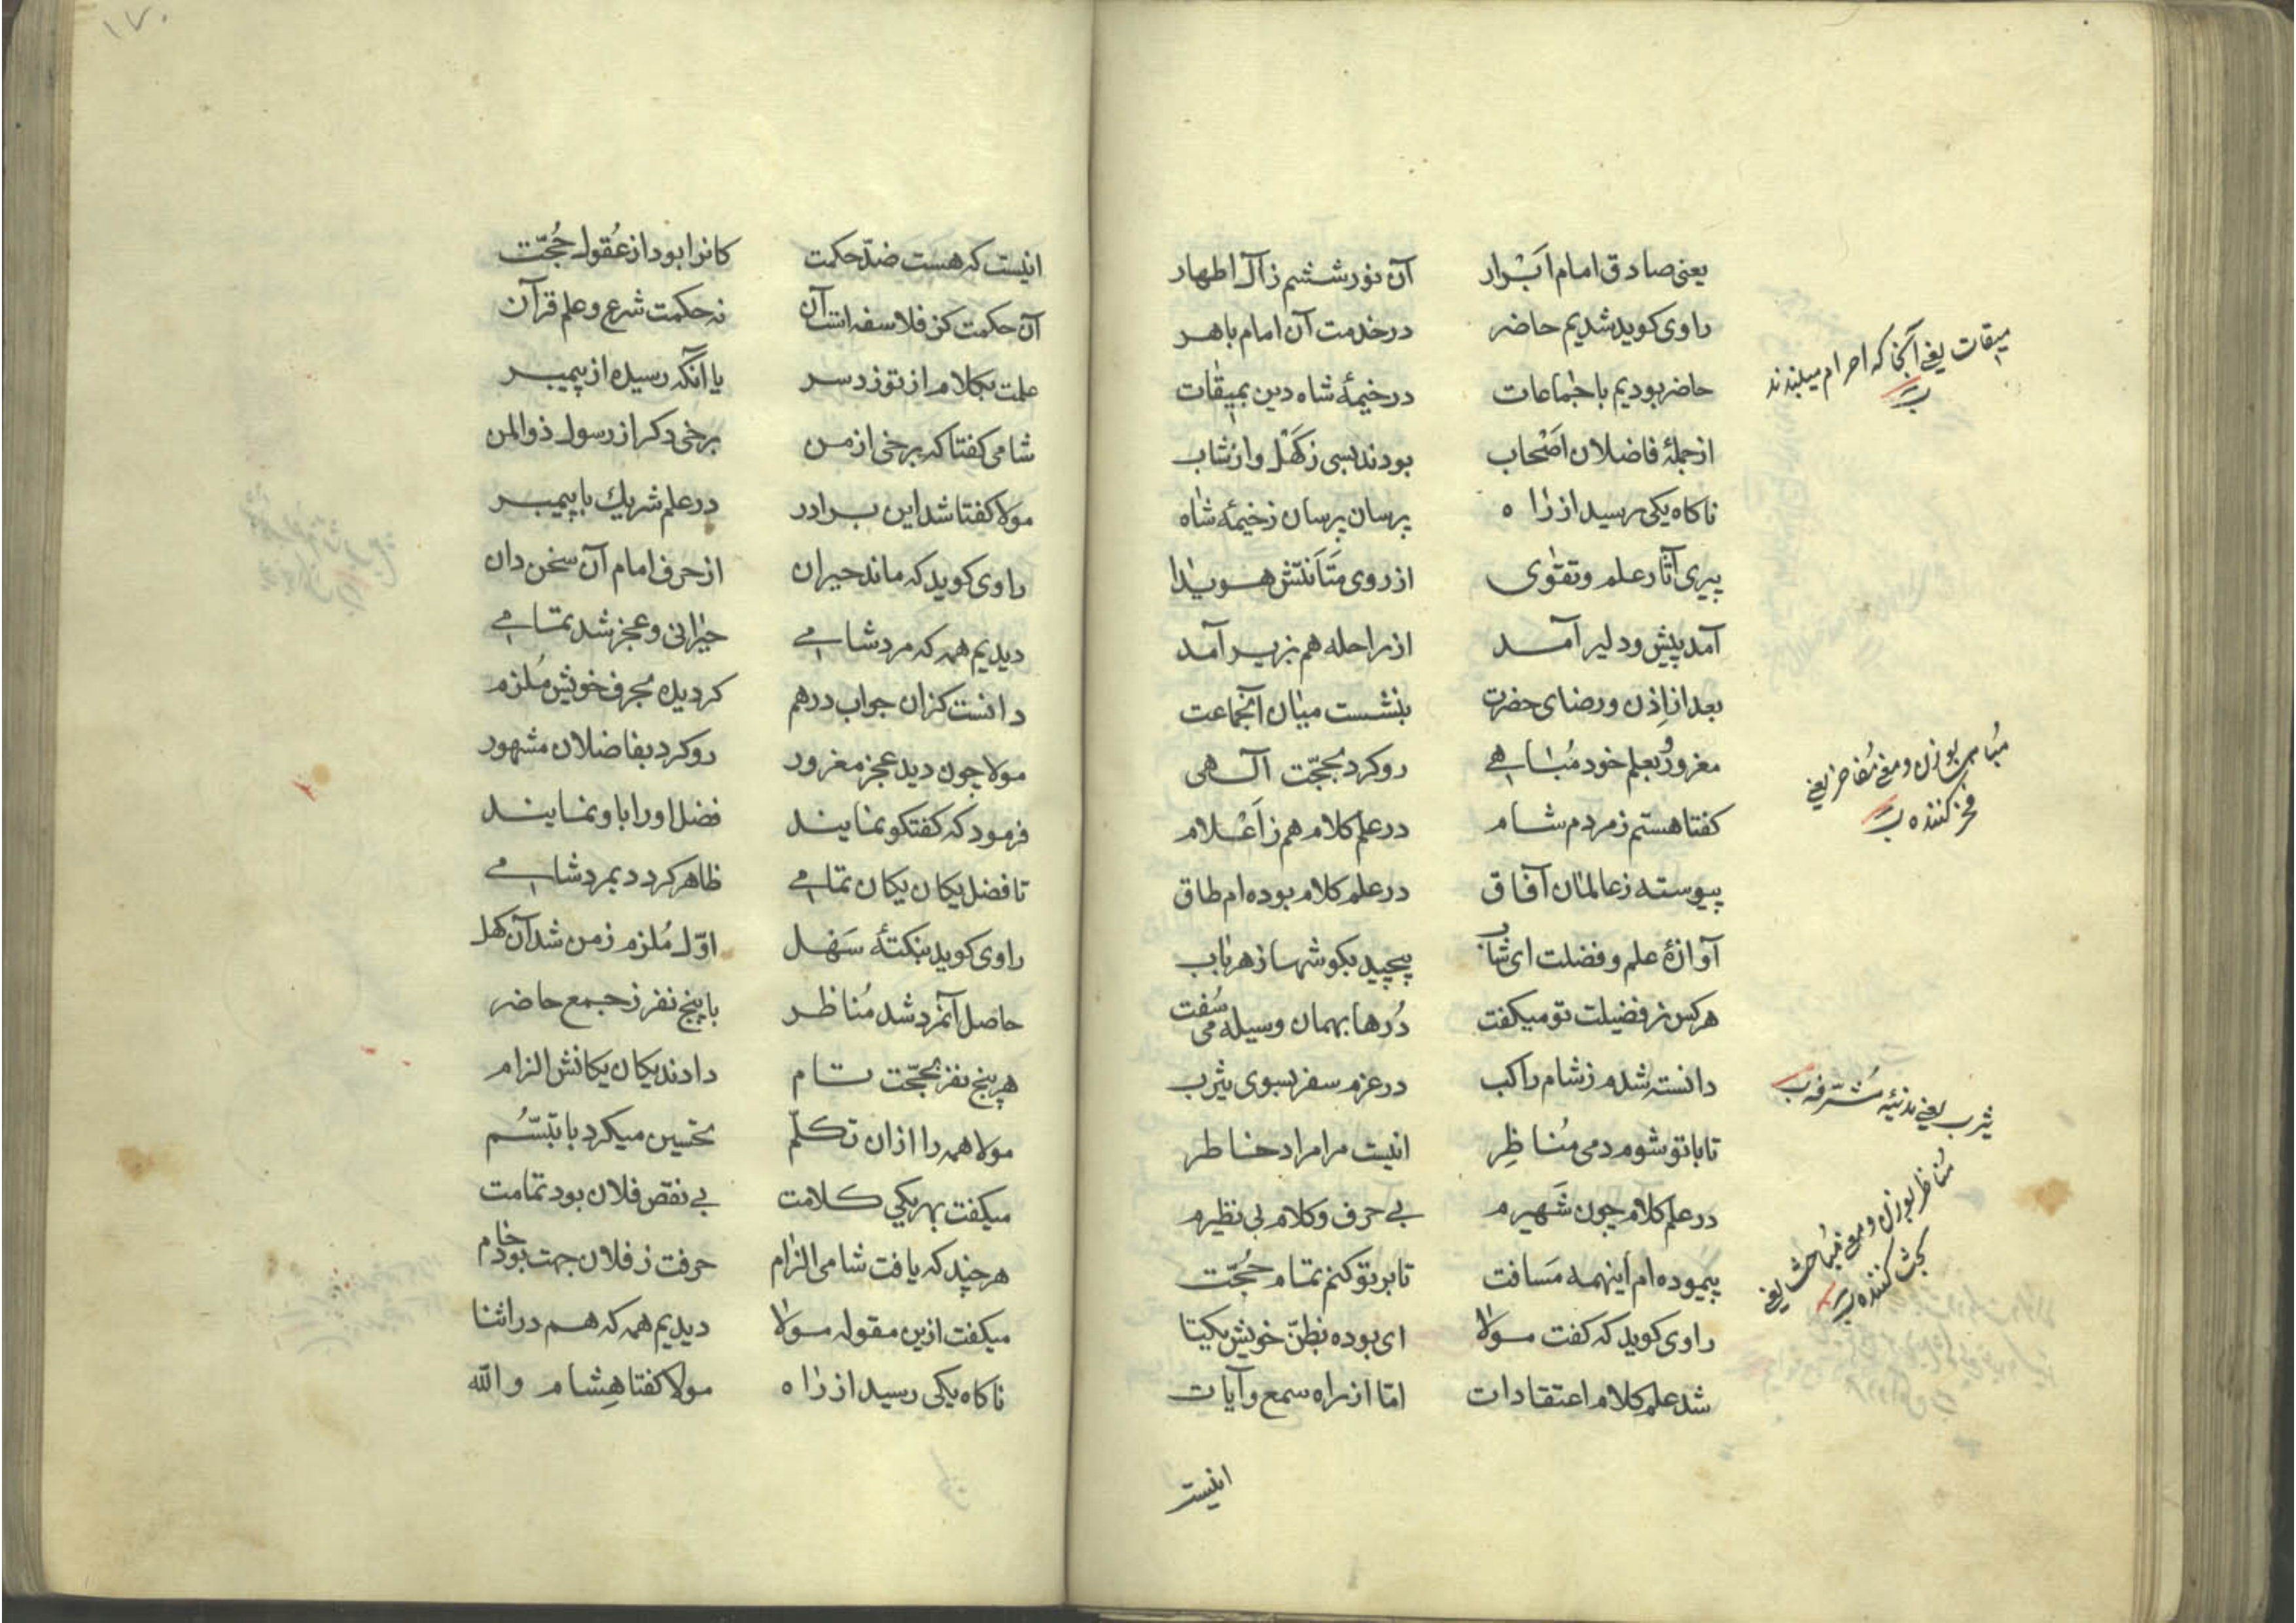 یعنی صادق امام ابرار آن نور ششم زآل اطهار
راوی کوید شدیم حاضر درخدمت آن امام باهر
حاضر بودیم با جماعات درخیمهٔ شاه دین بمیقات
میقات یعنی آنجا که احرام میبندند
ازجملهٔ فاضلان اَصْحاب بودند بسی زکَهْل واز شاب
ناکاه یکی رسید از راه پرسان پرسان زخیمهٔ شاه
پیری آثار علم وتقوی از روی متَانَتش هویدا
آمد پیش ودلیر آمد از راحله هم بزیر آمد
بعد از اِذن ورضای حضرت بنشست میان آنجماعت
مغرور بعلم خود مُباهی روکرد بحجّت آلهی
مُباهی بوزن ومعنی مُفاخر یعنی
فخر کننده
کفتا هستم زمردم شام درعلم کلام هم زاَعْلام
پیوسته زعالمان آفاق درعلم کلام بوده ام طاق
آوازهٔ علم وفضلت ای شاب پیچید بکوشها زهر باب
هرکس زفضیلت تو میکفت دُرها بهمان وسیله می سُفت
دانسته شدم زشام راکب درعزم سفر بسوی یثرب
یثرب یعنی مدینهٔ مُشرفه
تا باتو شوم دمی مُناظِر اینست مرا مراد خاطر
مُناظر بوزن ومعنی مُباحث یعنی
بحث کننده
درعلم کلام چون شَهیرم بی حرف وکلام بی نظیرم
پیموده ام اینهمه مَسافت تابر تو کنم تمام حُجّت
راوی کوید که کفت مولا ای بوده بظنّ خویش یکتا
شد علم کلام اعتقادات امّا از راه سمع وآیات
اینست
۱۷۰
اینست که هست ضدّ حکمت کانرا بود از عُقول حُجّت
آن حکمت کز فلاسفه است آن نه حکمت شرع وعلم قرآن
علمت بکلام از تو زد سر یا آنکه رسیده از پیمبر
شامی کفتا که برخی از من برخی دکر از رسول ذوالمن
مولا کفتا شد این برادر درعلم شریك با پیمبر
راوی کوید که ماند حیران از حرف امام آن سخن دان
دیدیم همه که مرد شامی حیرانی وعجز شد تمامی
دانست کزان جواب درهم کردیده بحرف خویش مُلزم
مولا چون دید عجز مغرور روکرد بفاضلان مشهور
فرمود که کفتکو نمایند فضل اورا باو نمایند
تا فضل یکان یکان تمامی ظاهر کردد بمرد شامی
راوی کوید بنکتهٔ سَهْل اوّل مُلزم زمن شد آن کهل
حاصل آنمرد شد مُناظر با پنج نفر زجمع حاضر
هر پنج نفر بحجّت تام دادند یکان یکانش الزام
مولا همه را ازان تکلّم تحسین میکرد با تبسّم
میکفت بهر یکی کلامت بی نقص فلان بود تمامت
هرچند که یافت شامی الزام حرفت زفلان جهت بود خام
میکفت ازین مقوله مولا دیدیم همه که هم دراثنا
ناکاه یکی رسید از راه مولا کفتا هِشام والله